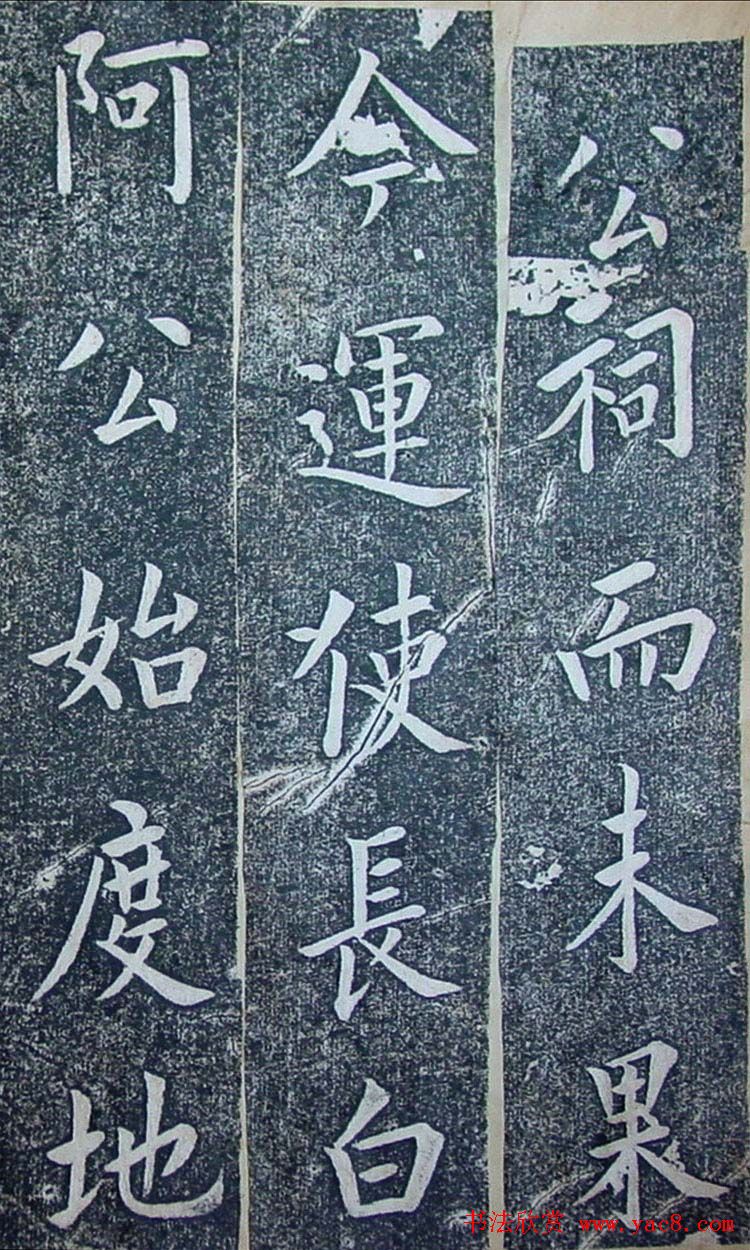 公祠而未果
今運使長白
阿公始度地
书法欣赏 www.yac8.com